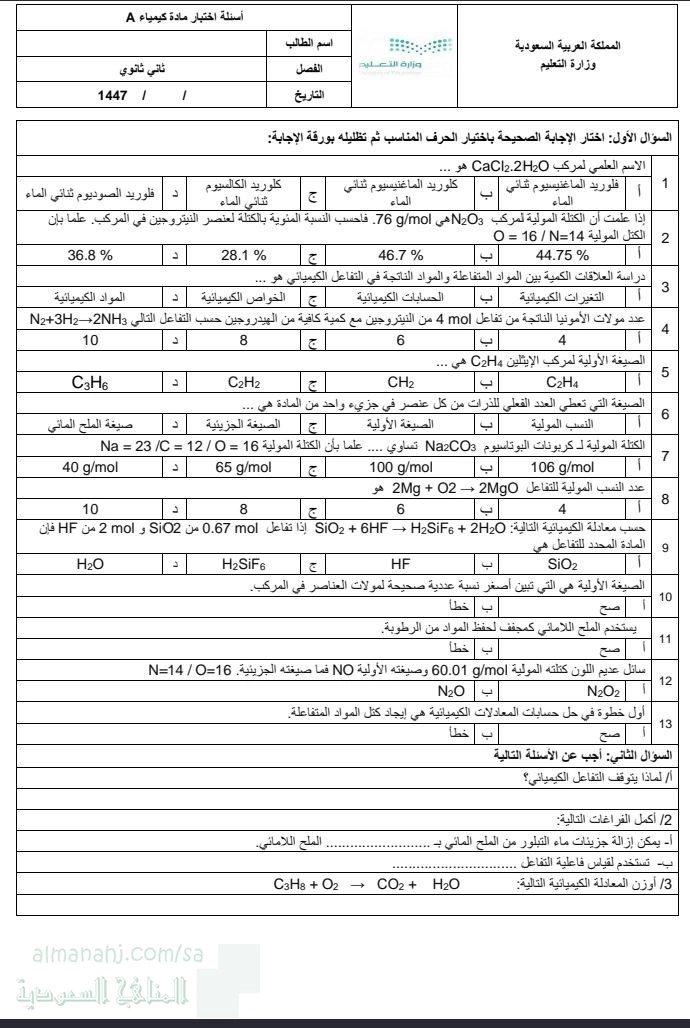 المملكة العربية السعودية
وزارة التعليم
وزارة التعليم
أسئلة اختبار مادة كيمياء A
اسم الطالب
الفصل ثاني ثانوي
التاريخ / / 1447
السؤال الأول: اختار الإجابة الصحيحة باختيار الحرف المناسب ثم تظليله بورقة الإجابة:
1 الاسم العلمي لمركب CaCl₂.2H₂O هو ...
أ فلوريد الماغنيسيوم ثنائي الماء ب كلوريد الماغنيسيوم ثنائي الماء ج كلوريد الكالسيوم ثنائي الماء د فلوريد الصوديوم ثنائي الماء
2 إذا علمت أن الكتلة المولية لمركب N₂O₃هي 76 g/mol. فاحسب النسبة المئوية بالكتلة لعنصر النيتروجين في المركب. علما بان
الكتل المولية O = 16 / N=14
أ 44.75 % ب 46.7 % ج 28.1 % د 36.8 %
3 دراسة العلاقات الكمية بين المواد المتفاعلة والمواد الناتجة في التفاعل الكيميائي هو ...
أ التغيرات الكيميائية ب الحسابات الكيميائية ج الخواص الكيميائية د المواد الكيميائية
4 عدد مولات الأمونيا الناتجة من تفاعل 4 mol من النيتروجين مع كمية كافية من الهيدروجين حسب التفاعل التالي N₂+3H₂→2NH₃
أ 4 ب 6 ج 8 د 10
5 الصيغة الأولية لمركب الإيثلين C₂H₄ هي ...
أ C₂H₄ ب CH₂ ج C₂H₂ د C₃H₆
6 الصيغة التي تعطي العدد الفعلي للذرات من كل عنصر في جزيء واحد من المادة هي ...
أ النسب المولية ب الصيغة الأولية ج الصيغة الجزيئية د صيغة الملح المائي
7 الكتلة المولية لـ كربونات البوتاسيوم Na₂CO₃ تساوي .... علما بأن الكتلة المولية Na = 23 /C = 12 / O = 16
أ 106 g/mol ب 100 g/mol ج 65 g/mol د 40 g/mol
8 عدد النسب المولية للتفاعل 2Mg + O2 → 2MgO هو
أ 4 ب 6 ج 8 د 10
9 حسب معادلة الكيميائية التالية: SiO₂ + 6HF → H₂SiF₆ + 2H₂O إذا تفاعل 0.67 mol من SiO2 و 2 mol من HF فإن
المادة المحدد للتفاعل هي
أ SiO₂ ب HF ج H₂SiF₆ د H₂O
10 الصيغة الأولية هي التي تبين أصغر نسبة عددية صحيحة لمولات العناصر في المركب.
أ صح ب خطأ
11 يستخدم الملح اللامائي كمجفف لحفظ المواد من الرطوبة.
أ صح ب خطأ
12 سائل عديم اللون كتلته المولية 60.01 g/mol وصيغته الأولية NO فما صيغته الجزيئية. N=14 / O=16
أ N₂O₂ ب N₂O
13 أول خطوة في حل حسابات المعادلات الكيميائية هي إيجاد كتل المواد المتفاعلة.
أ صح ب خطأ
السؤال الثاني: أجب عن الأسئلة التالية
أ/ لماذا يتوقف التفاعل الكيميائي؟
2/ أكمل الفراغات التالية:
أ- يمكن إزالة جزيئات ماء التبلور من الملح المائي بـ .......................... الملح اللامائي.
ب- تستخدم لقياس فاعلية التفاعل ...............................
3/ أوزن المعادلة الكيميائية التالية: C₃H₈ + O₂ → CO₂ + H₂O
almanahj.com/sa
المناهج السعودية